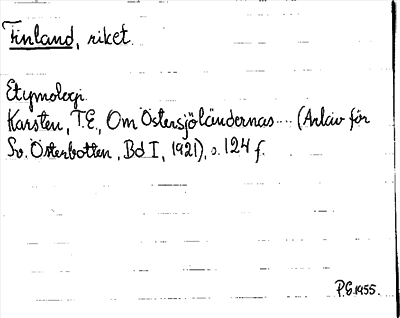 Finland, riket.
Etymologi.
Karsten, T.E., Om Östersjöländernas... (Arkiv för
Sv. Österbotten, Bd I, 1921), s. 124 f.
P.E. 1955.